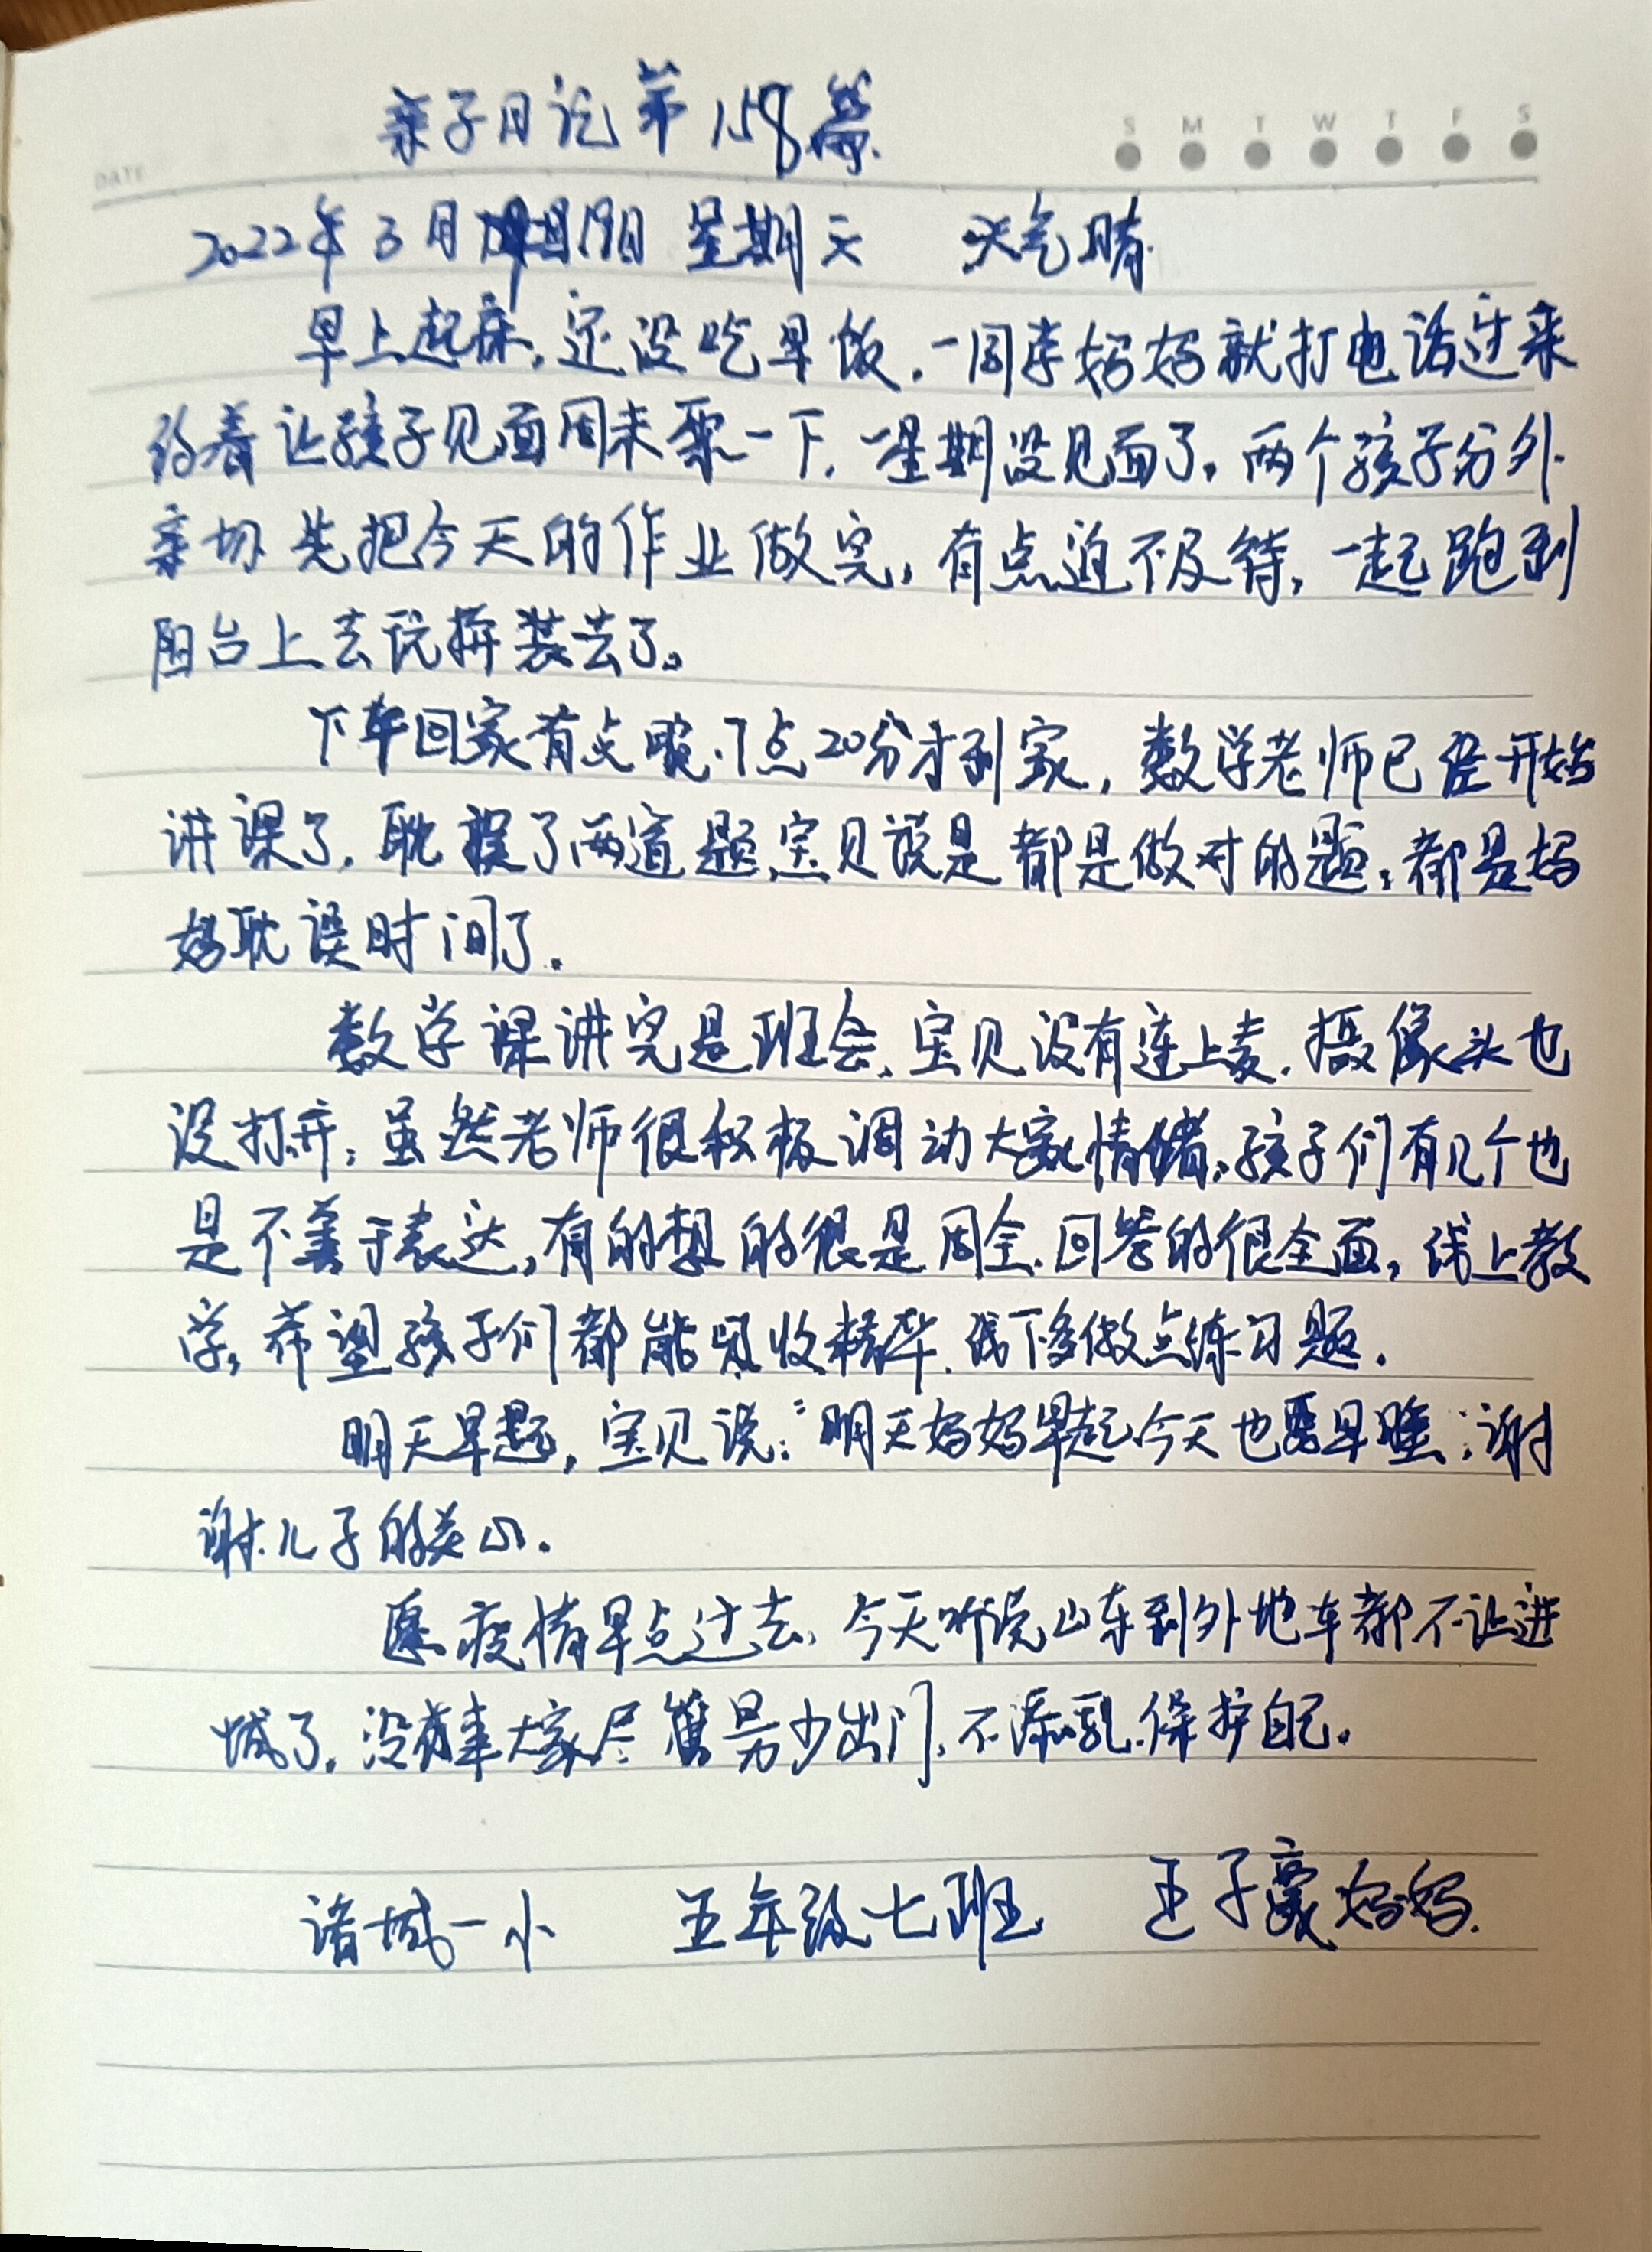 亲子日记第158篇.
DATE
S M T W T F S
2022年3月19日 星期天 天气晴.
早上起床，还没吃早饭，一同学妈妈就打电话过来
约着让孩子见面周末聚一下，一星期没见面了，两个孩子分外
亲切 先把今天的作业做完，有点迫不及待，一起跑到
阳台上去玩拼装去了。
下午回家有点晚，7点20分才到家，数学老师已经开始
讲课了，耽误了两道题，宝贝说是都是做对的题，都是妈
妈耽误时间了.
数学课讲完是班会，宝贝没有连上麦，摄像头也
没打开，虽然老师很积极调动大家情绪，孩子们有几个也
是不善于表达，有的想的很是周全，回答的很全面，线上教
学，希望孩子们都能吸收精华，线下多做点练习题.
明天早起，宝贝说：“明天妈妈早起今天也要早睡”，谢
谢儿子的关心.
愿疫情早点过去，今天听说山东到外地车都不让进
城了，没有事大家尽管少出门，不添乱，保护自己。
诸城一小 五年级七班 王子豪妈妈.